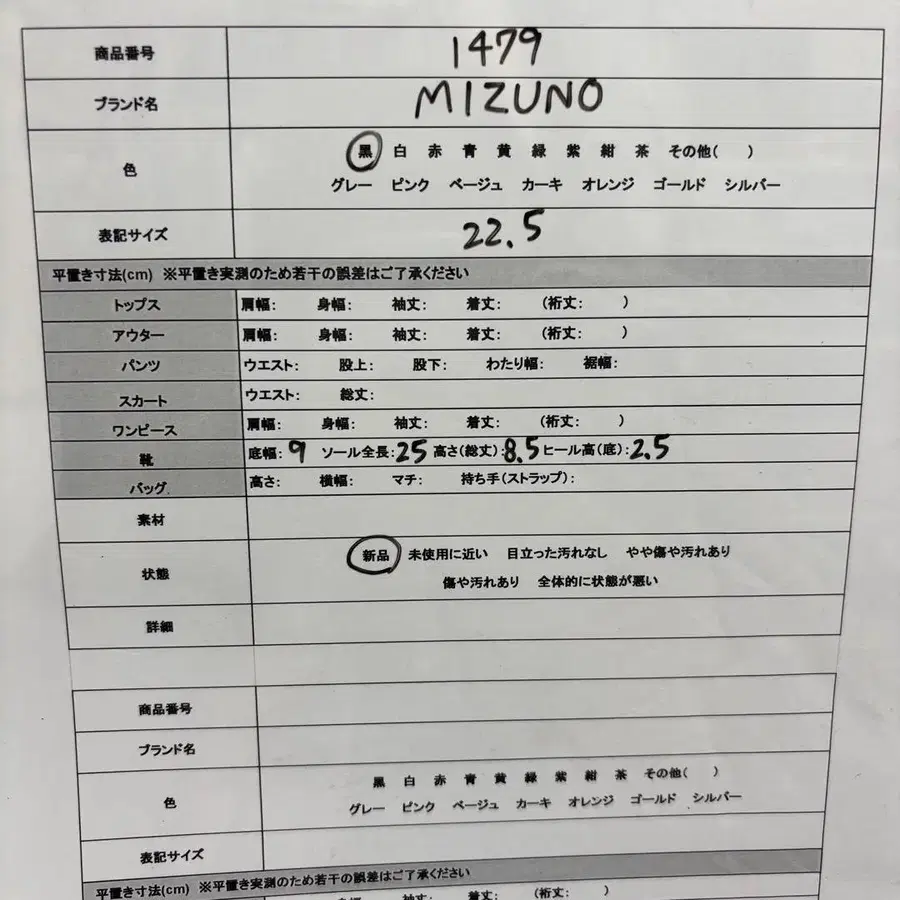 商品番号 1479
ブランド名 MIZUNO
色 黒 白 赤 青 黄 緑 紫 紺 茶 その他( )
グレー ピンク ベージュ カーキ オレンジ ゴールド シルバー
表記サイズ 22.5
平置き寸法(cm) ※平置き実測のため若干の誤差はご了承ください
トップス 肩幅: 身幅: 袖丈: 着丈: (裄丈: )
アウター 肩幅: 身幅: 袖丈: 着丈: (裄丈: )
パンツ ウエスト: 股上: 股下: わたり幅: 裾幅:
スカート ウエスト: 総丈:
ワンピース 肩幅: 身幅: 袖丈: 着丈: (裄丈: )
靴 底幅: 9 ソール全長: 25 高さ(総丈): 8.5 ヒール高(底): 2.5
バッグ 高さ: 横幅: マチ: 持ち手(ストラップ):
素材
状態 新品 未使用に近い 目立った汚れなし やや傷や汚れあり
傷や汚れあり 全体的に状態が悪い
詳細
商品番号
ブランド名
色 黒 白 赤 青 黄 緑 紫 紺 茶 その他( )
グレー ピンク ベージュ カーキ オレンジ ゴールド シルバー
表記サイズ
平置き寸法(cm) ※平置き実測のため若干の誤差はご了承ください
身幅: 袖丈: 着丈: (裄丈: )